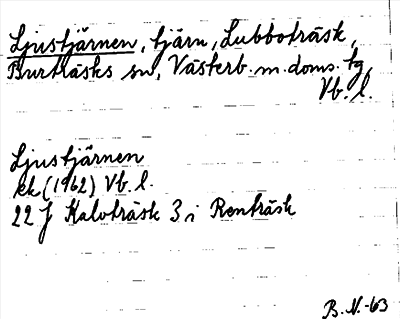 Ljustjärnen, tjärn, Lubboträsk,
Burträsks sn, Västerb. m. doms. tg,
Vb. l.
Ljustjärnen
ek (1962) Vb. l.
22 J Kaloträsk 3 i Renträsk
B.N.-63